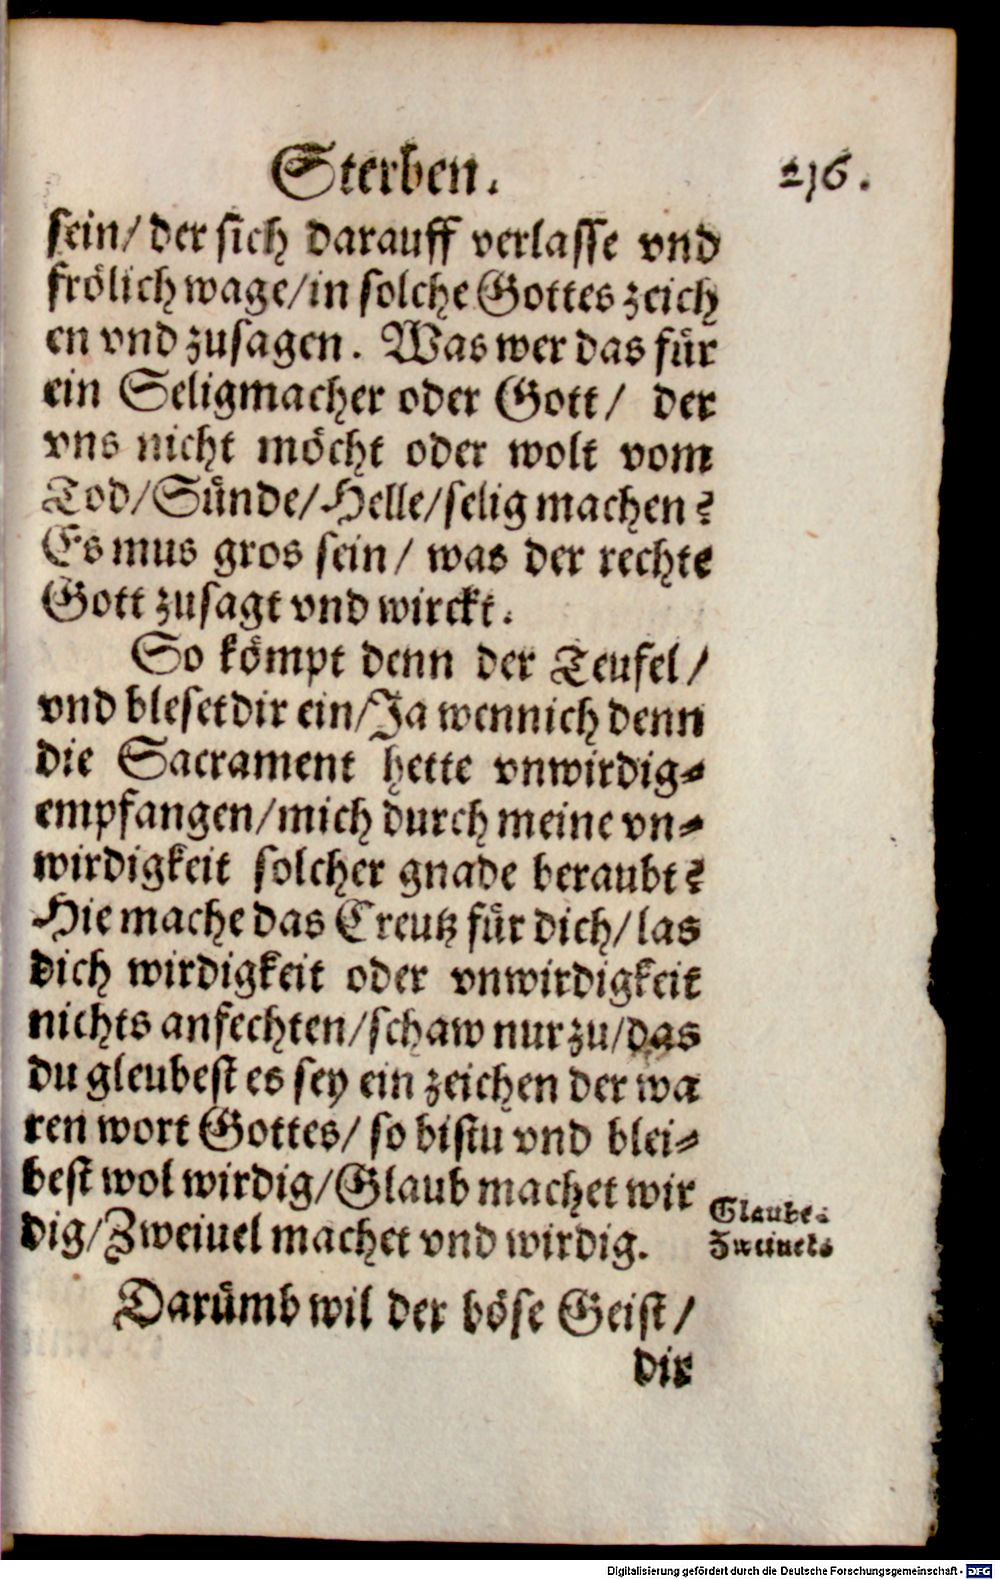 Sterben. 216.
sein/ der sich darauff verlasse vnd
frölich wage/in solche Gottes zeich
en vnd zusagen. Was wer das für
ein Seligmacher oder Gott/ der
vns nicht möcht oder wolt vom
Tod/Sünde/Helle/selig machen?
Es mus gros sein/ was der rechte
Gott zusagt vnd wirckt.
So kömpt denn der Teufel/
vnd bleset dir ein/Ja wenn ich denn
die Sacrament hette vnwirdig-
empfangen/mich durch meine vn-
wirdigkeit solcher gnade beraubt?
Hie mache das Creutz für dich/las
dich wirdigkeit oder vnwirdigkeit
nichts anfechten/schaw nur zu/das
du gleubest es sey ein zeichen der wa
ren wort Gottes/ so bistu vnd blei-
best wol wirdig/Glaub machet wir
dig/Zweiuel machet vnd wirdig.
Glaube.
Zweiuels
Darümb wil der böse Geist/
dir
Digitalisierung gefördert durch die Deutsche Forschungsgemeinschaft - DFG